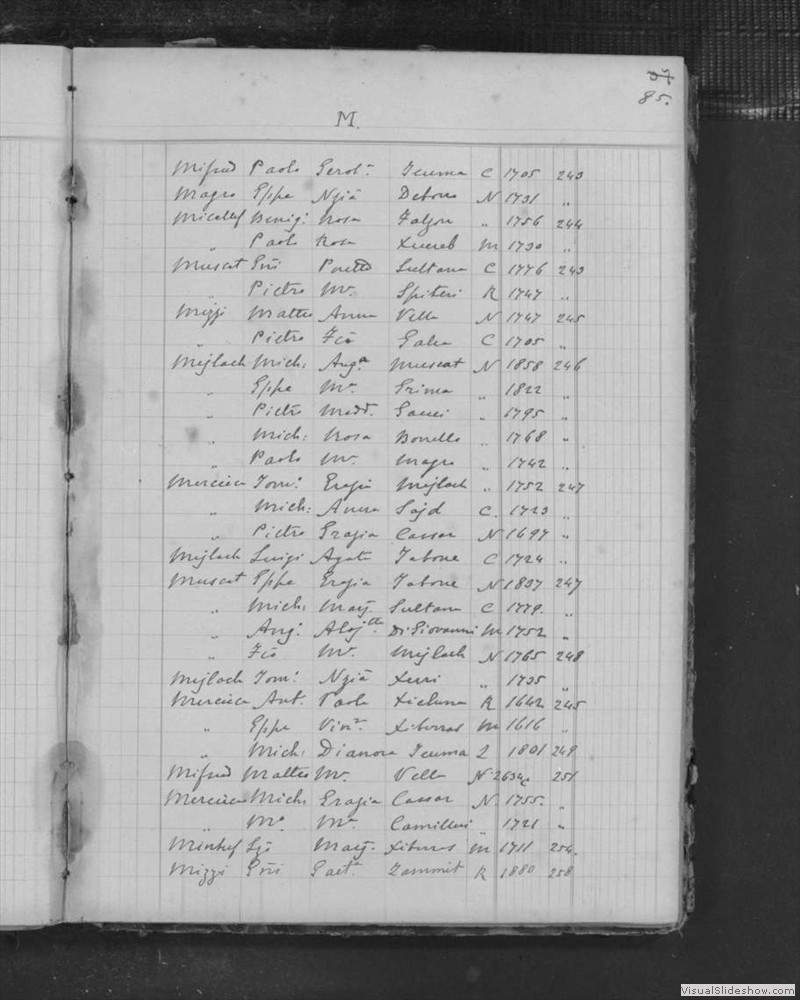 85.
M.
Mifsud Paolo Gerol.ª Teuma C 1705 243
Magro Gppe Ngiã Debono N 1731 "
Micallef Benig: Rosa Falzon " 1756 244
" Paolo Rosa Xuereb M 1730 "
Muscat Gio Sultana C 1776 243
" Pietro Mª. Spiteri R 1747 "
Mizzi Matteo Anna Vella N 1747 245
" Pietro Fcã Galea C 1705 "
Mejlach Mich: Angª Muscat N 1858 246
" Gppe Mª. Grima " 1822 "
" Pietro Madd. Gauci " 1795 "
" Mich: Rosa Bonello " 1768 "
" Paolo Mª. Magro " 1742 "
Mercieca Tom: Grazia Mejlach " 1752 247
" Mich: Anna Sajd C. 1723 "
" Pietro Grazia Cassar N 1697 "
Mejlach Luigi Agata Tabone C 1724 "
Muscat Gppe Grazia Tabone N 1837 247
" Mich: Marg. Sultana C 1779. "
" Ang: Di Giovanni M 1752 "
" Fcõ Mª. Mejlach N 1765 248
Mejlach Tom: Ngiã Xerri " 1735 "
Mercieca Ant. Paola Xicluna R 1642 245
" Gppe Vinª. Xiberras M 1616 "
" Mich: Dianora Teuma 2 1801 249
Mifsud Matteo Mª. Vella N 251
Mercieca Mich: Grazia Cassar N. 1755. "
" Mº Mª Camilleri " 1721 "
Lzo Marg. Xiberras M 1711 254.
Mizzi Gio Gaetª. Zammit R 1880 258
VisualSlideshow.com